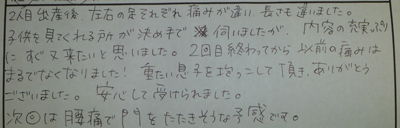 2人目出産後、左右の足それぞれ痛みが違い、長さも違いました。
子供を見てくれる所が決め手で伺いましたが、内容の充実ぶり
にすぐ又来たいと思いました。2回目終わってから以前の痛みは
まるでなくなりました!重たい息子を抱っこして頂き、ありがとう
ございました。安心して受けられました。
次回は腰痛で門をたたきそうな予感です。